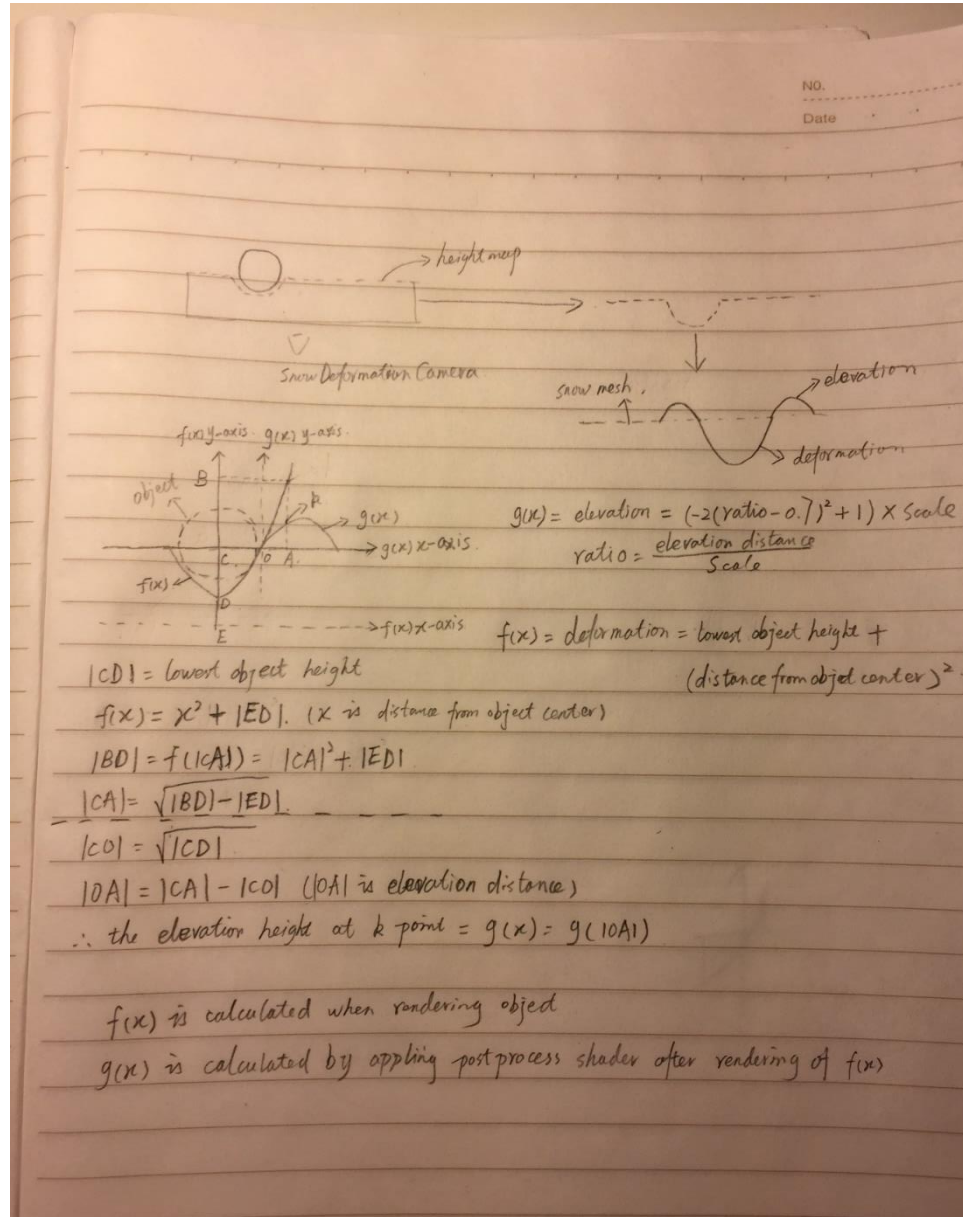 NO.
Date
heightmap
Snow Deformation Camera
snow mesh.
elevation
deformation
f(x) y-axis g(x) y-axis.
B
object
k
g(x)
C O A
g(x) x-axis.
f(x)
D
E
f(x) x-axis
g(x) = elevation = (-2(ratio-0.7)²+1) × Scale
ratio = elevation distance / Scale
f(x) = deformation = lowest object height +
(distance from objet center)².
|CD| = lowest object height
f(x) = x² + |ED|. (x is distance from object center)
|BD| = f(|CA|) = |CA|² + |ED|
|CA| = √|BD|-|ED|.
|CO| = √|CD|
|OA| = |CA| - |CO| (|OA| is elevation distance)
∴ the elevation height at k point = g(x) = g(|OA|)
f(x) is calculated when rendering objed
g(x) is calculated by appling postprocess shader after rendering of f(x)